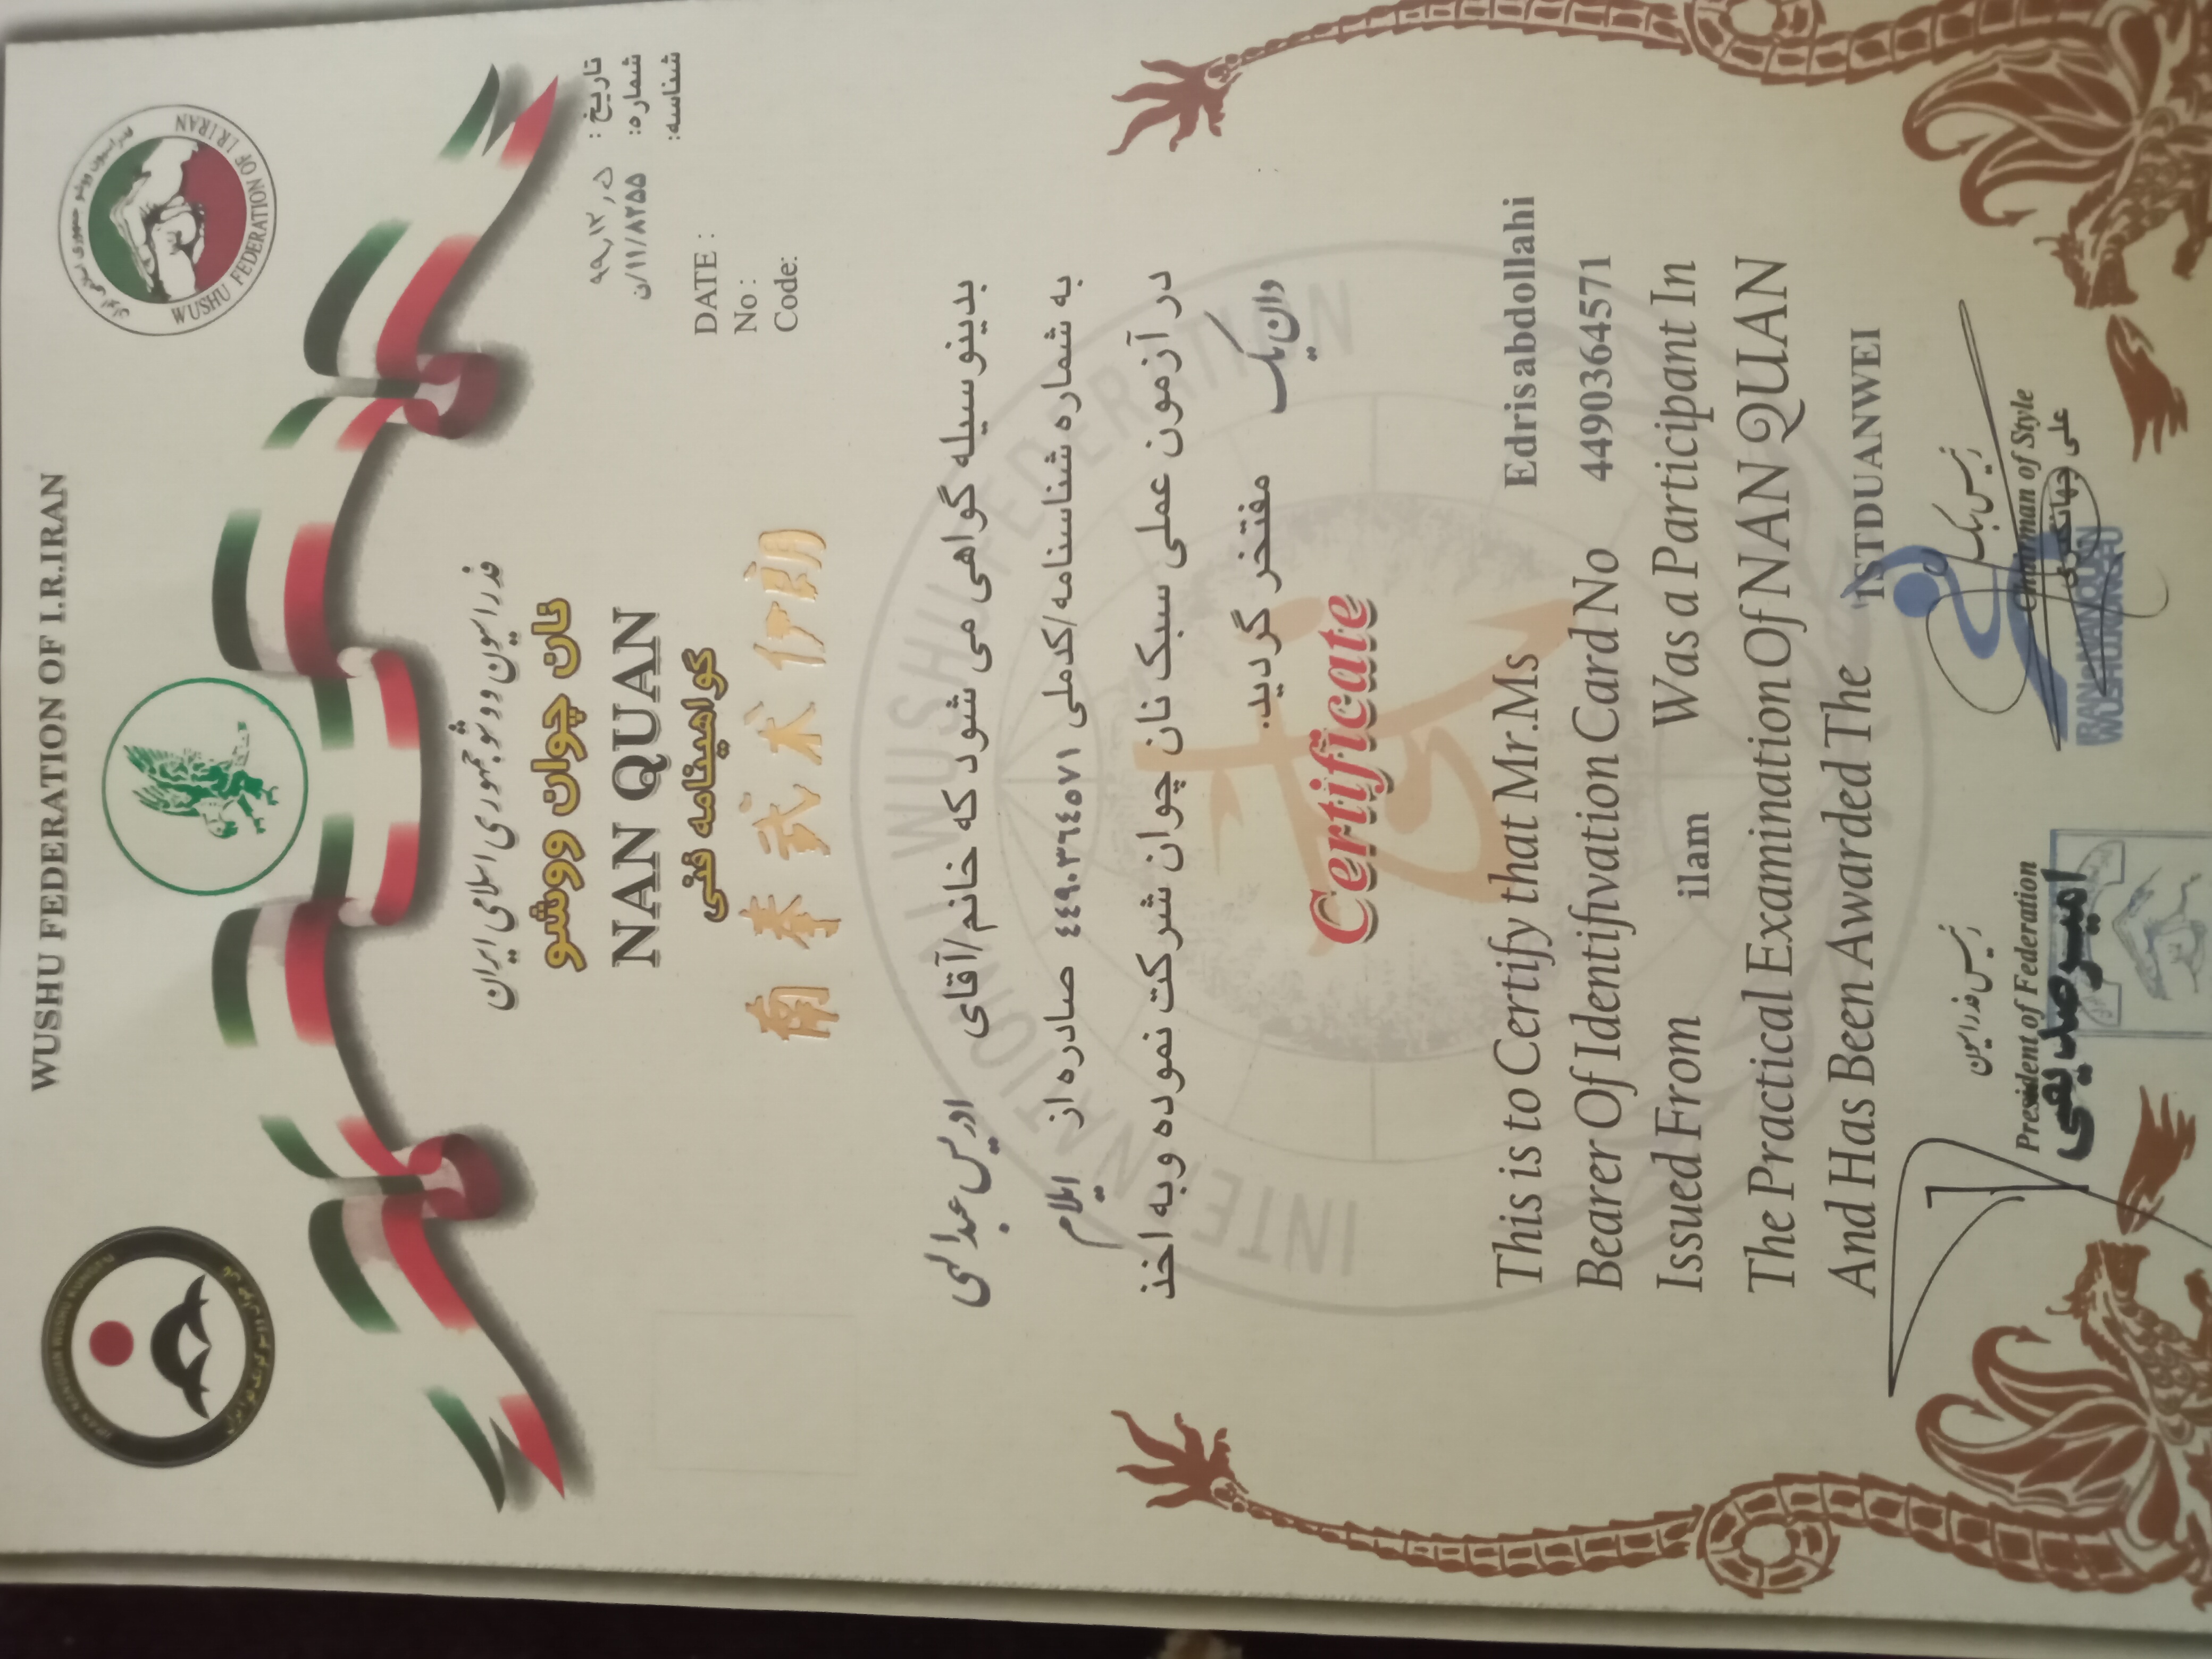 WUSHU FEDERATION OF I.R.IRAN
WUSHU FEDERATION OF I.R.IRAN
فدراسیون ووشو جمهوری اسلامی ایران
نان چوان ووشو
NAN QUAN
گواهینامه فنی
南拳武术伊朗
تاریخ :
شماره: ن/۱۱/۸۲۵۵
شناسه:
DATE :
No :
Code:
بدینوسیله گواهی می شود که خانم/آقای ادریس عبدالهی
به شماره شناسنامه/کدملی ٤٤٩٠٣٦٤٥٧١ صادره از ایلام
در آزمون عملی سبک نان چوان شرکت نموده وبه اخذ
دان یک مفتخر گردید.
INTERNATIONAL WUSHU FEDERATION
Certificate
This is to Certify that Mr.Ms Edrisabdollahi
Bearer Of Identifivation Card No 4490364571
Issued From ilam Was a Participant In
The Practical Examination Of NAN QUAN
And Has Been Awarded The 1STDUANWEI
رئیس فدراسیون
President of Federation
امیر صدیقی
رئیس سبک
Chairman of Style
علی جهانگیری
IRAN NANQUAN
WUSHU KUNGFU